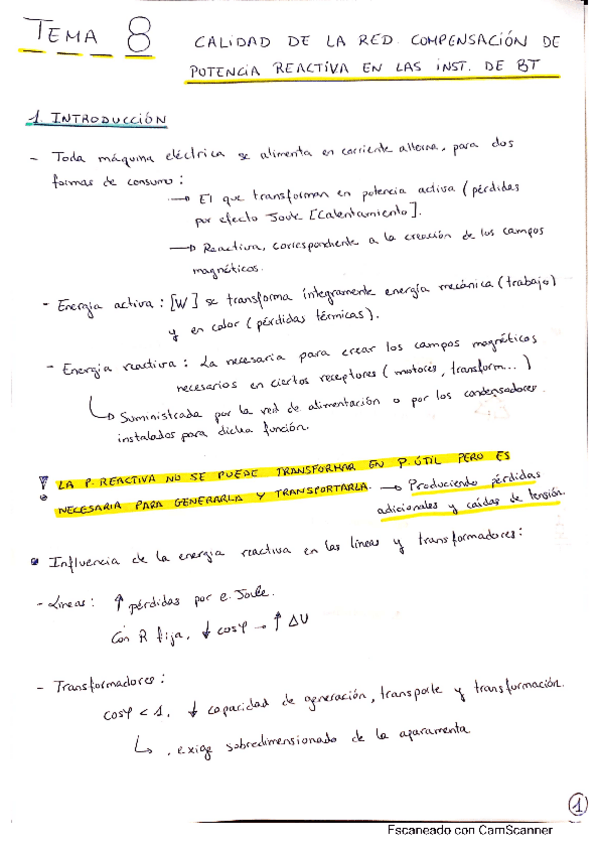 TEMA 8
CALIDAD DE LA RED. COMPENSACIÓN DE
POTENCIA REACTIVA EN LAS INST. DE BT
1. INTRODUCCIÓN
- Toda máquina eléctrica se alimenta en corriente alterna, para dos
formas de consumo:
→ El que transforman en potencia activa (pérdidas
por efecto Joule [Calentamiento].
→ Reactiva, correspondiente a la creación de los campos
magnéticos.
- Energía activa: [W] se transforma íntegramente energía mecánica (trabajo)
y en calor (pérdidas térmicas).
- Energía reactiva: La necesaria para crear los campos magnéticos
necesarios en ciertos receptores (motores, transform...)
↳ Suministrada por la red de alimentación o por los condensadores
instalados para dicha función.
LA P. REACTIVA NO SE PUEDE TRANSFORMAR EN P. ÚTIL PERO ES
NECESARIA PARA GENERARLA Y TRANSPORTARLA. → Produciendo pérdidas
adicionales y caídas de tensión.
Influencia de la energía reactiva en las líneas y transformadores:
- Líneas: ↑ pérdidas por e. Joule.
Con R fija, ↓ cosφ → ↑ ΔU
- Transformadores:
cosφ < 1, ↓ capacidad de generación, transporte y transformación.
↳ . exige sobredimensionado de la aparamenta
1
Escaneado con CamScanner